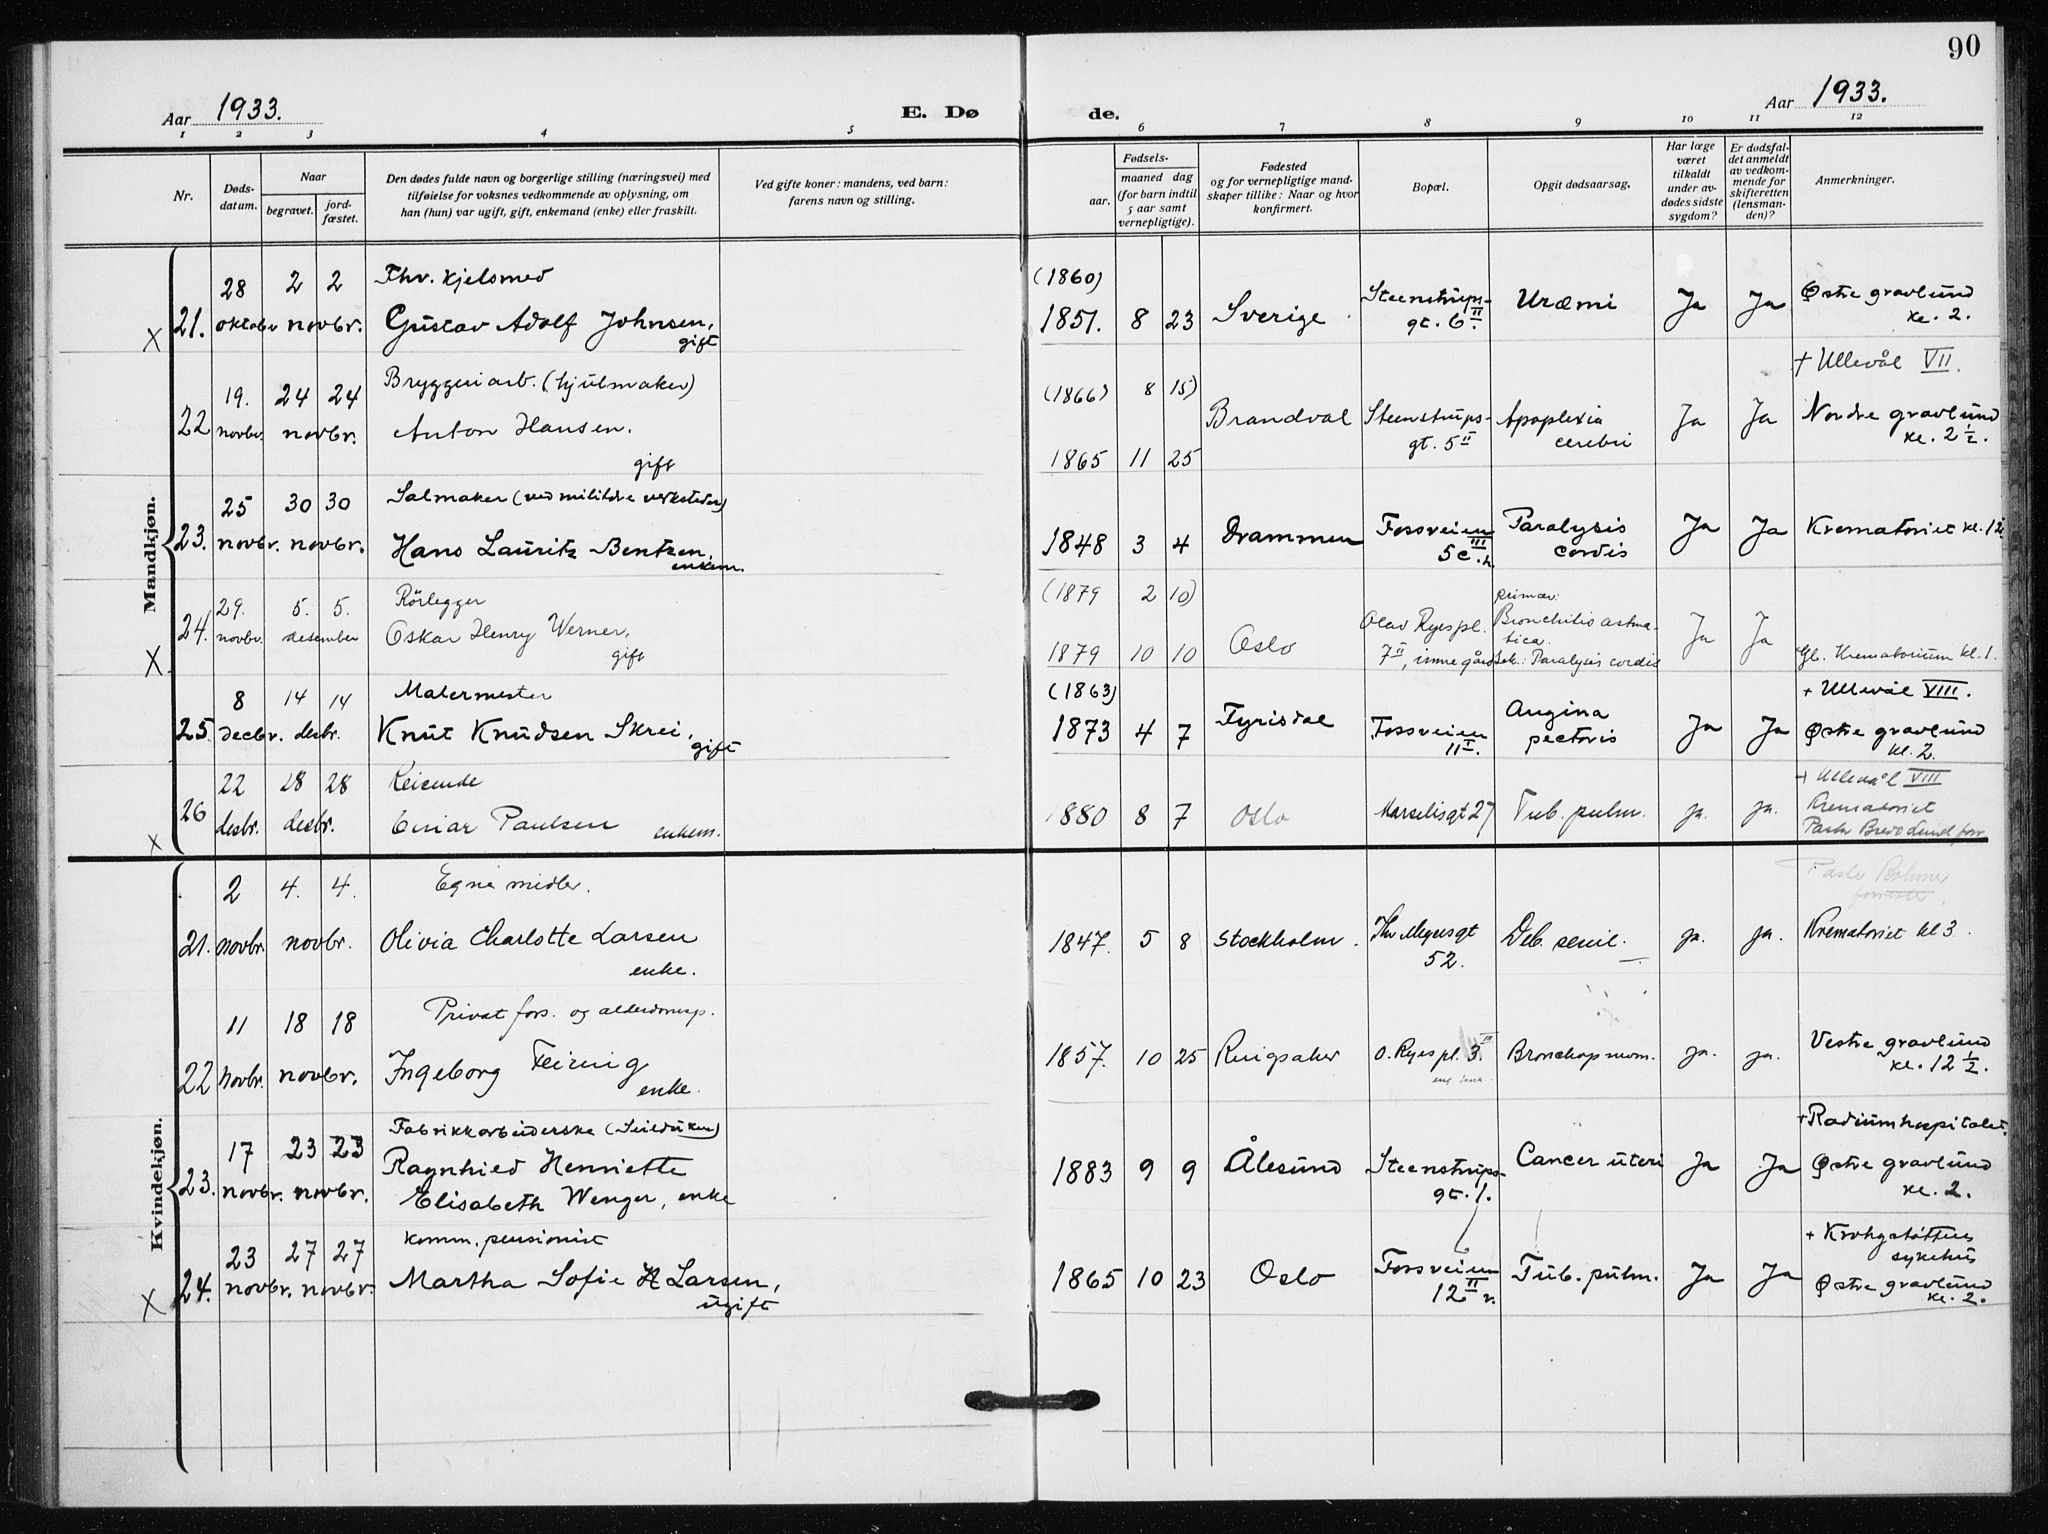 90
Aar 1933.
E. Dø
de.
Aar 1933.
1 2 3 4 5 6 7 8 9 10 11 12
Nr.
Døds-
datum.
Naar
begravet.
jord-
fæstet.
Den dødes fulde navn og borgerlige stilling (næringsvei) med
tilføielse for voksnes vedkommende av oplysning, om
han (hun) var ugift, gift, enkemand (enke) eller fraskilt.
Ved gifte koner: mandens, ved barn:
farens navn og stilling.
Fødsels-
aar.
maaned dag
(for barn indtil
5 aar samt
vernepligtige).
Fødested
og for vernepligtige mand-
skaper tillike: Naar og hvor
konfirmert.
Bopæl.
Opgit dødsaarsag.
Har læge
været
tilkaldt
under av-
dødes sidste
sygdom?
Er dødsfal-
det anmeldt
av vedkom-
mende for
skifteretten
(lensman-
den)?
Anmerkninger.
Mandkjøn.
28 2 2 Fhv. Kjelsmed
(1860)
X 21. oktober novbr. Gustav Adolf Johnsen,
gift
1851. 8 23 Sverige.
Steenstrups-
gt. 6 II
Uræmi
Ja Ja
Østre gravlund
kl. 2.
19. 24 24 Bryggeriarb. (hjulmaker)
22 novbr. novbr. Anton Hansen.
gift
(1866) 8 15)
1865 11 25
Brandval
Steenstrups-
gt. 5 II
Apoplexia
cerebri
Ja Ja
+ Ullevål VII.
Nordre gravlund
kl. 2 1/2.
25 30 30 Salmaker (ved militære verksteder)
23. novbr. novbr. Hans Lauritz Bentzen,
enkem.
1848 3 4 Drammen
Fossveien
5c III h.
Paralysis
cordis
Ja Ja
Krematoriet kl. 12
29. 5. 5. Rörlegger
24. novbr. desember Oskar Henry Werner,
gift
X
(1879 2 10)
1879 10 10
Oslo
Olav Ryespl.
7 II, inne gård
primær:
Bronchitis astma-
tica.
Sek.: Paralysis cordis
Ja Ja
Gl. Krematorium kl. 1.
8 14 14 Malermester
25. decbr. desbr. Knut Knudsen Skrei,
gift
(1863)
1873 4 7
Fyrisdal
Fossveien
11 I.
Angina
pectoris
Ja Ja
+ Ullevål VIII.
Østre gravlund
kl. 2.
22 28 28 Reisende
26 desbr. desbr. Einar Paulsen enkem.
X
1880 8 7 Oslo
Marselisgt 27
Tub. pulm.
ja. ja.
+ Ullevål VIII
Krematoriet
Pastor Bredo Lund forr
Kvindekjøn.
2 4. 4. Egne midler.
21. novbr. novbr. Olivia Charlotte Larsen
enke.
1847. 5 8 Stockholm.
Thv Meyersgt
52.
Deb. senil.
ja. ja.
Krematoriet kl 3.
11 18 18 Privat fors. og alderdomsp.
22 novbr. novbr. Ingeborg Feiring
enke.
1857. 10 25 Ringsaker
O. Ryespl. 3. II
Bronchopneum.
ja. ja.
Vestre gravlund
kl. 12 1/2.
17 23 23 Fabrikkarbeiderske (Seilduken)
23. novbr. novbr. Ragnhild Henriette
Elisabeth Wenger, enke
1883 9 9 Ålesund
Steenstrups-
gt. 1.
Cancer uteri
Ja Ja
+ Radiumhospitalet.
Østre gravlund
kl. 2.
23 27 27 Komm. pensionist
X 24. novbr. novbr. Martha Sofie H Larsen,
ugift
1865 10 23 Oslo
Fossveien
12 II v.
Tub. pulm.
Ja Ja
+ Krohgstøttens
sykehus
Østre gravlund
kl. 2.